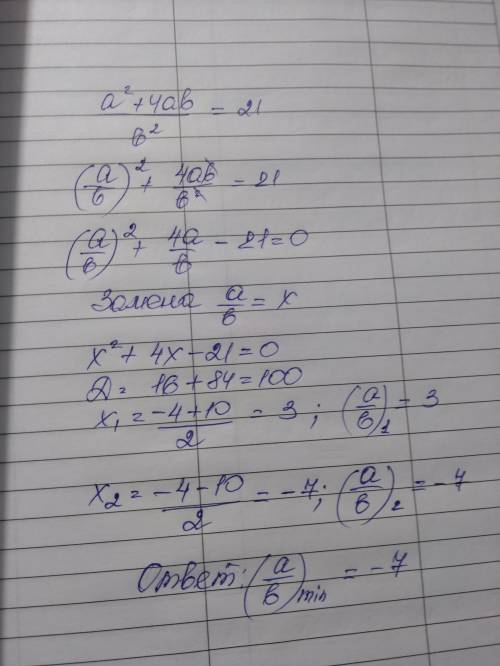 (a² + 4ab)/b² = 21
(a/b)² + 4ab/b² = 21
(a/b)² + 4a/b - 21 = 0
Замена a/b = x
x² + 4x - 21 = 0
D = 16 + 84 = 100
x₁ = (-4+10)/2 = 3 ; (a/b)₁ = 3
x₂ = (-4-10)/2 = -7; (a/b)₂ = -7
Ответ: (a/b)min = -7